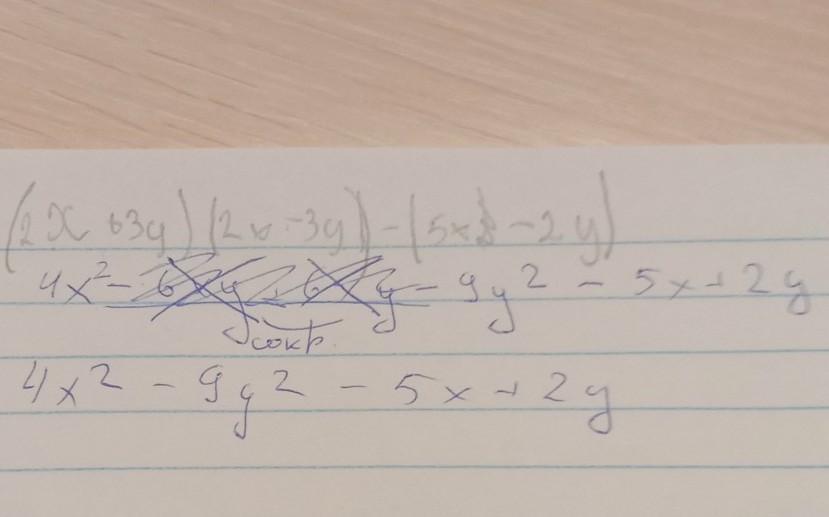 (2x+3y)(2x-3y)-(5x-2y)
4x²-6xy+6xy-9y²-5x+2y
сокр.
4x²-9y²-5x+2y